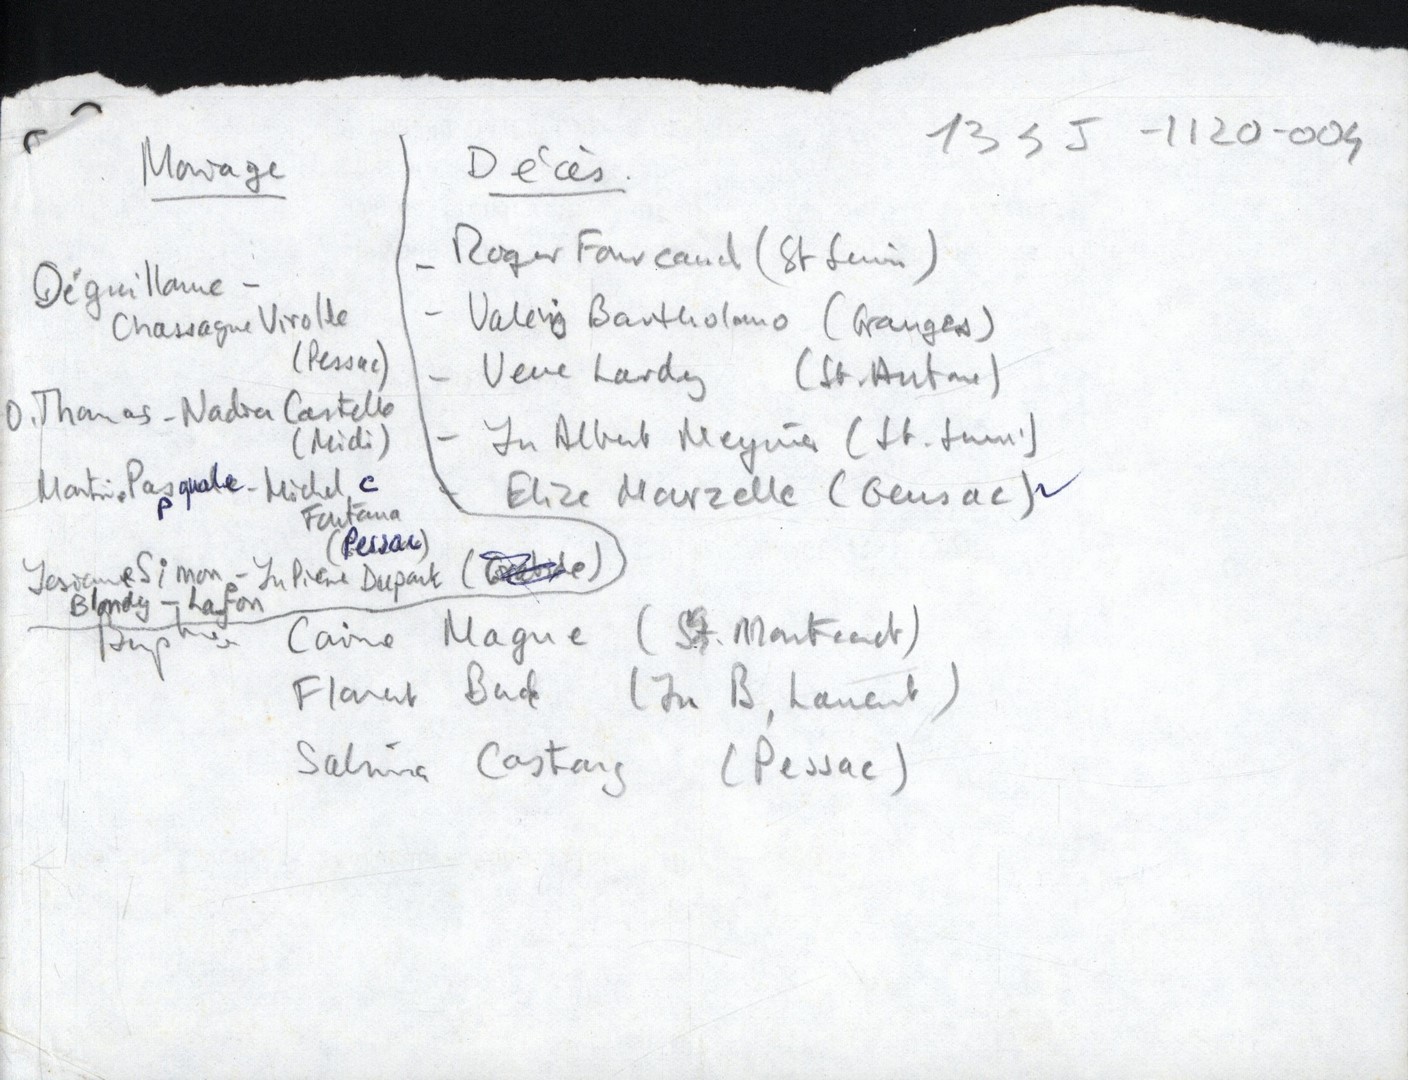 134J-1120-004
Mariage
Déguillame -
Chassagne Virolle
(Pessac)
D. Thomas - Nadia Castello
(Midi)
Martine Pasquale - Michel
Fontana
(Pessac)
Josiane Simon - Jn Pierre Dupont
Blondy - Lafon
Décès.
- Roger Fourcaud (St Seurin)
- Valéry Bartholomo (Granges)
- Veuve Lardy (St. Antoine)
- Jn Albert Meynier (St. Seurin)
- Elize Marzelle (Gensac)
Carine Magne (St. Montcaret)
Florent Bade (Jn B, Laurent)
Sabrina Castang (Pessac)